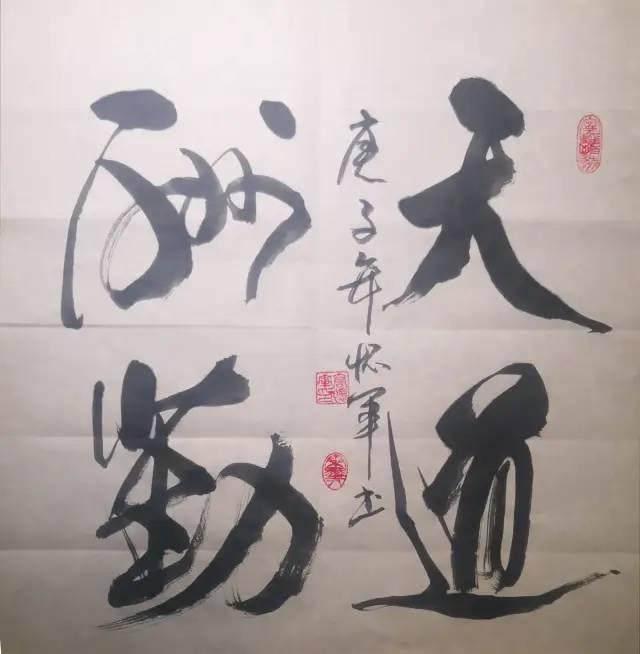 天道
酬勤
庚子年怀军书